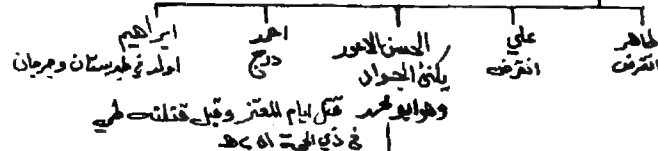 طاهر
انقرض
علي
انقرض
الحسن الاعور
يكنى الجواد
وهو ابو محمد قتل ايام المعتز وقيل قتلته طي
في ذي الحجة ٢٥١هـ
احمد
درج
ابراهيم
اولد في طبرستان وجرجان